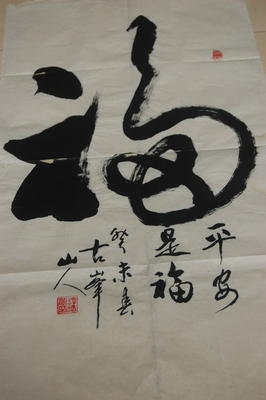 福
平安
是福
癸未春
古峯
山人